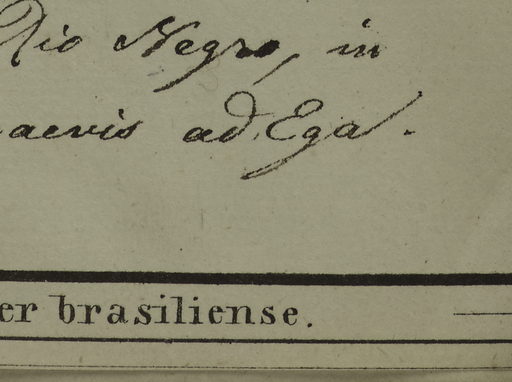 Rio Negro, in
aevis ad Ega.
er brasiliense.